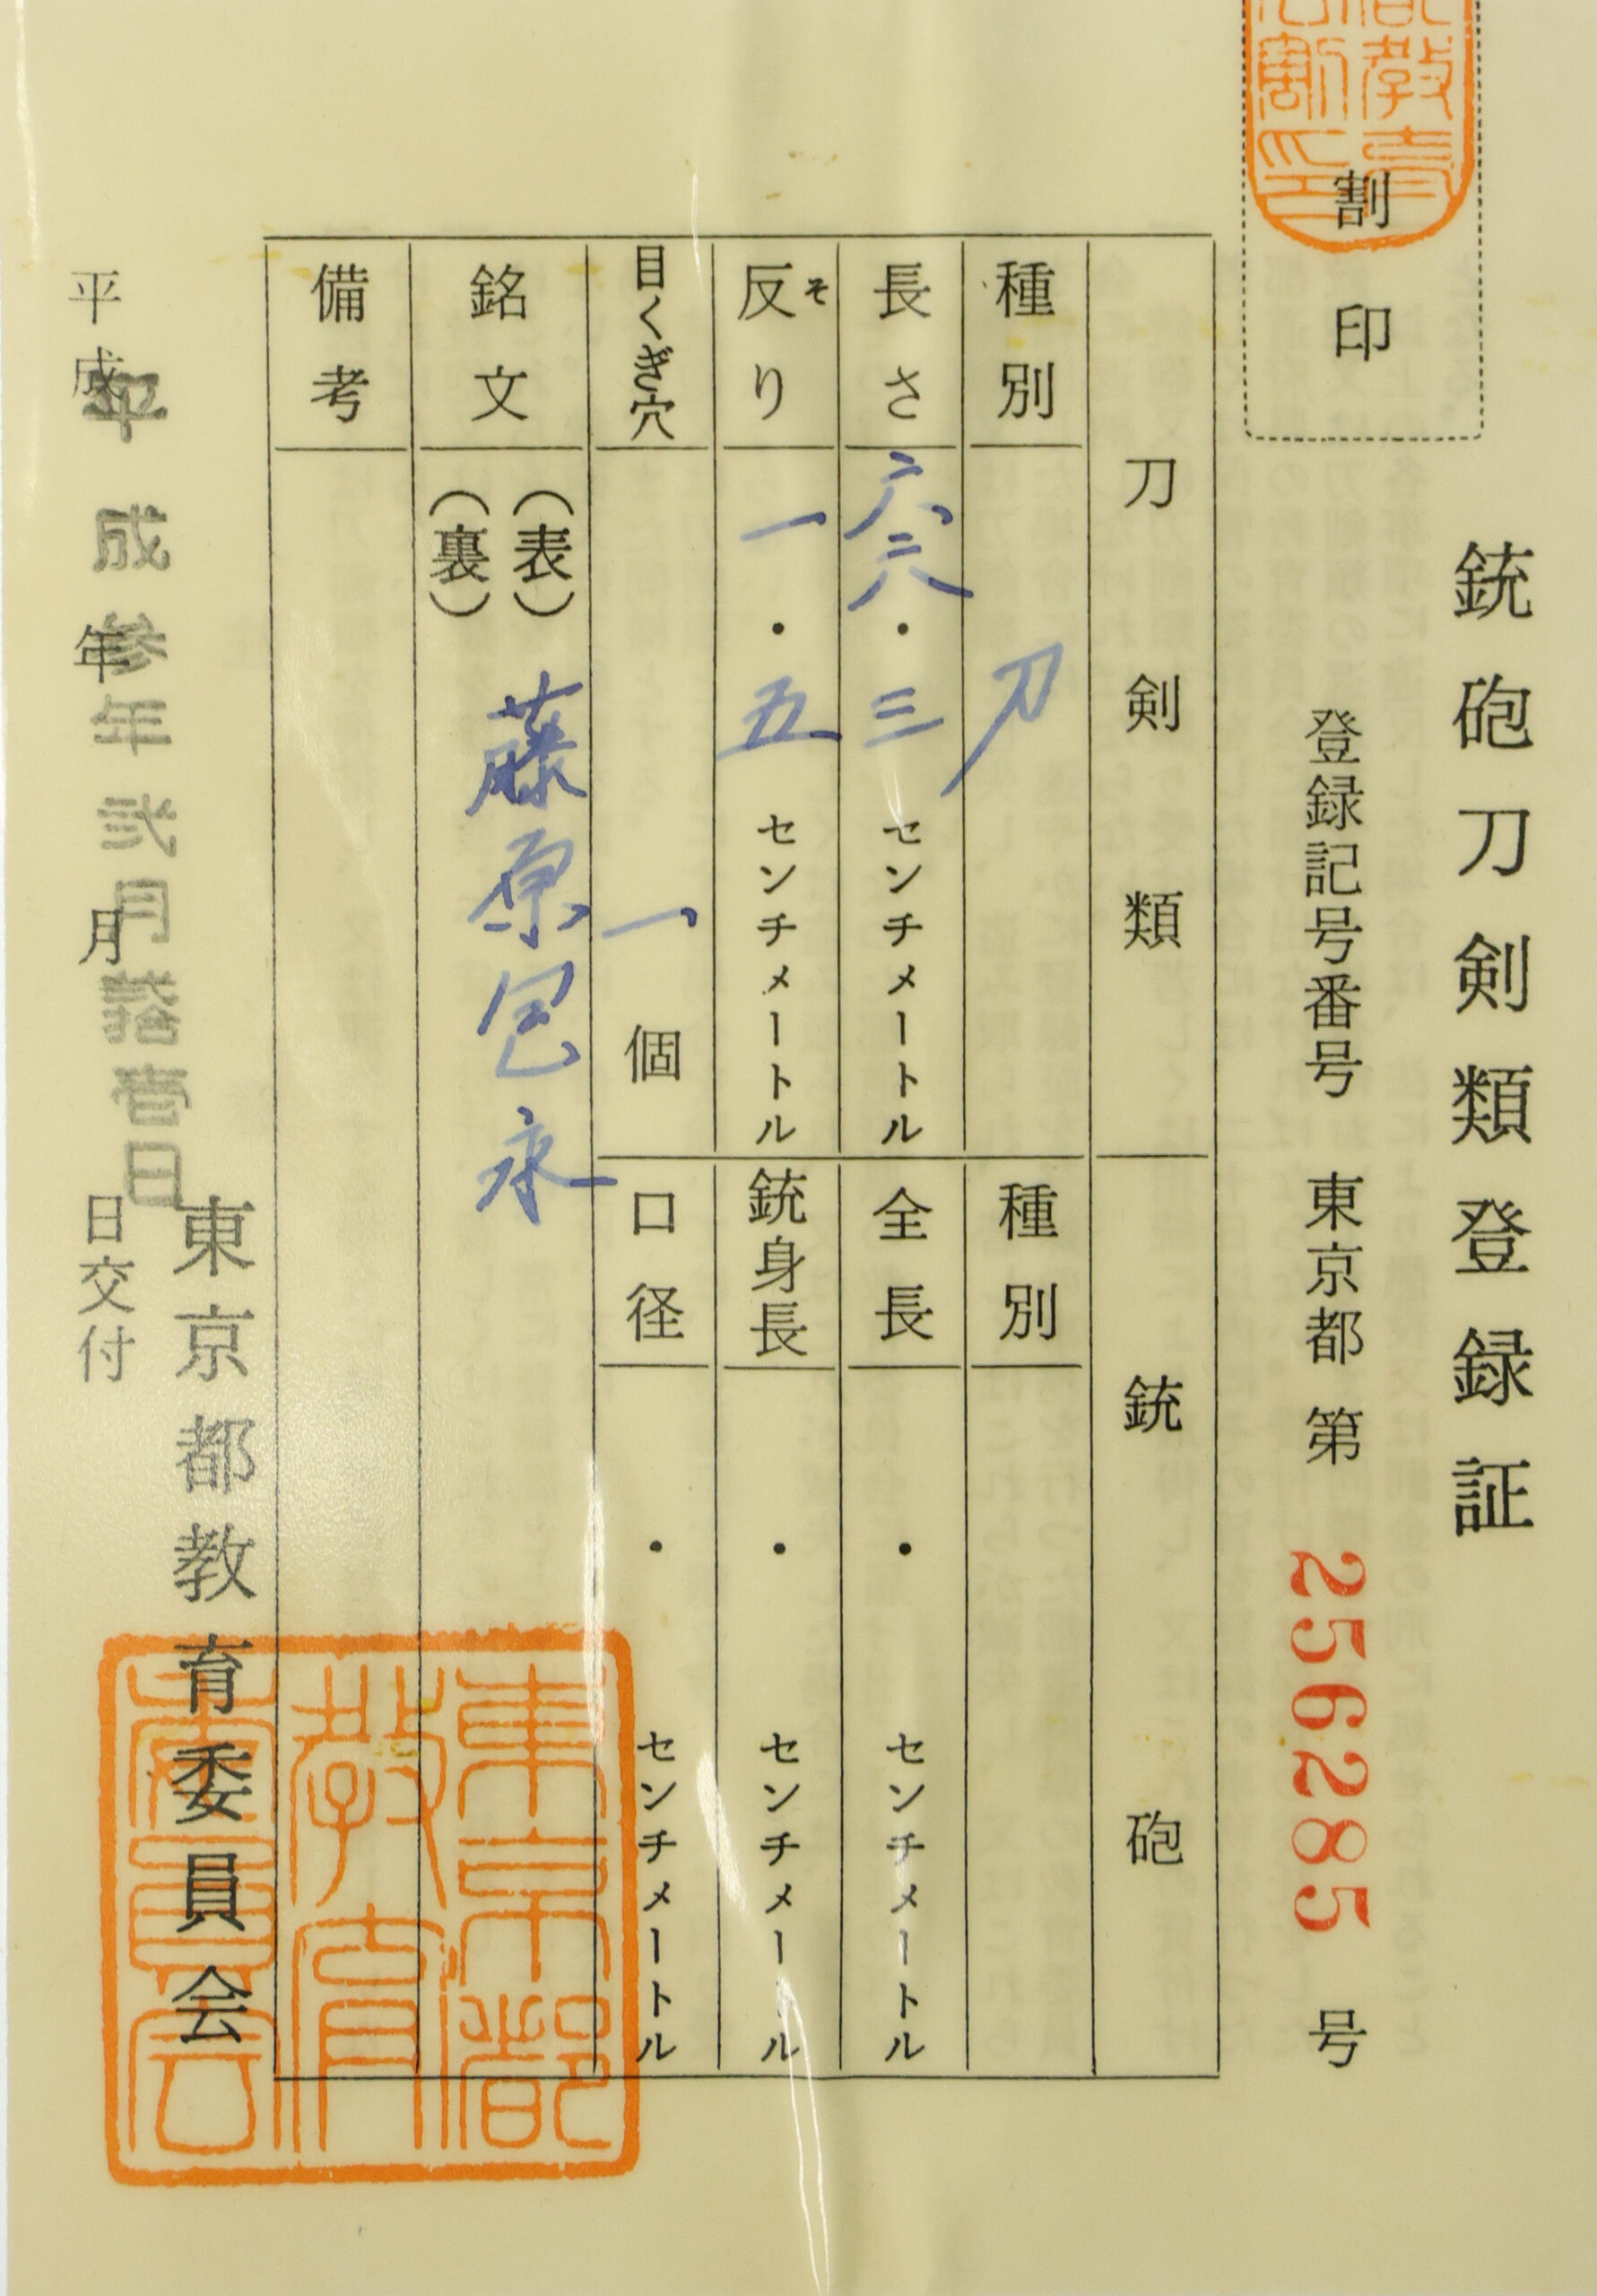 銃砲刀剣類登録証
割印
登録記号番号 東京都 第 256285 号
刀剣類
銃砲
種別 刀
種別
長さ 六六・三 センチメートル
全長 ・ センチメートル
反り そ 一・五 センチメートル
銃身長 ・ センチメートル
目くぎ穴 一個
口径 ・ センチメートル
銘文 (表) (裏) 藤原包永
備考
東京都教育委員会
東京都
教育
委員会
平成 年 月 日交付
平成参年弐月拾壱日